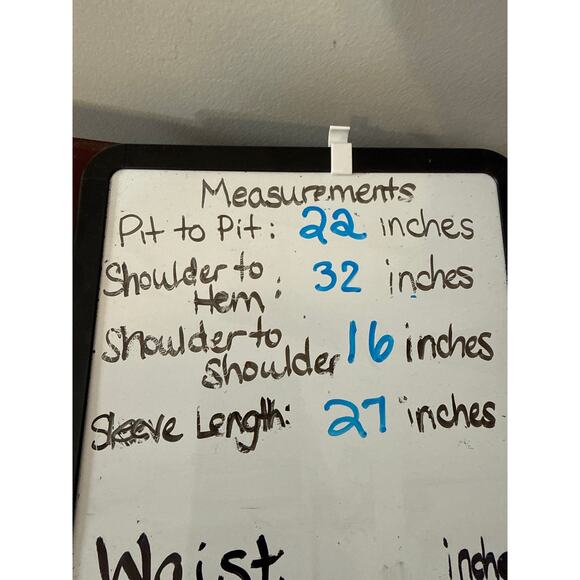 Measurements
Pit to Pit: 22 inches
Shoulder to
Hem: 32 inches
Shoulder to
Shoulder 16 inches
Sleeve Length: 27 inches
Waist inche